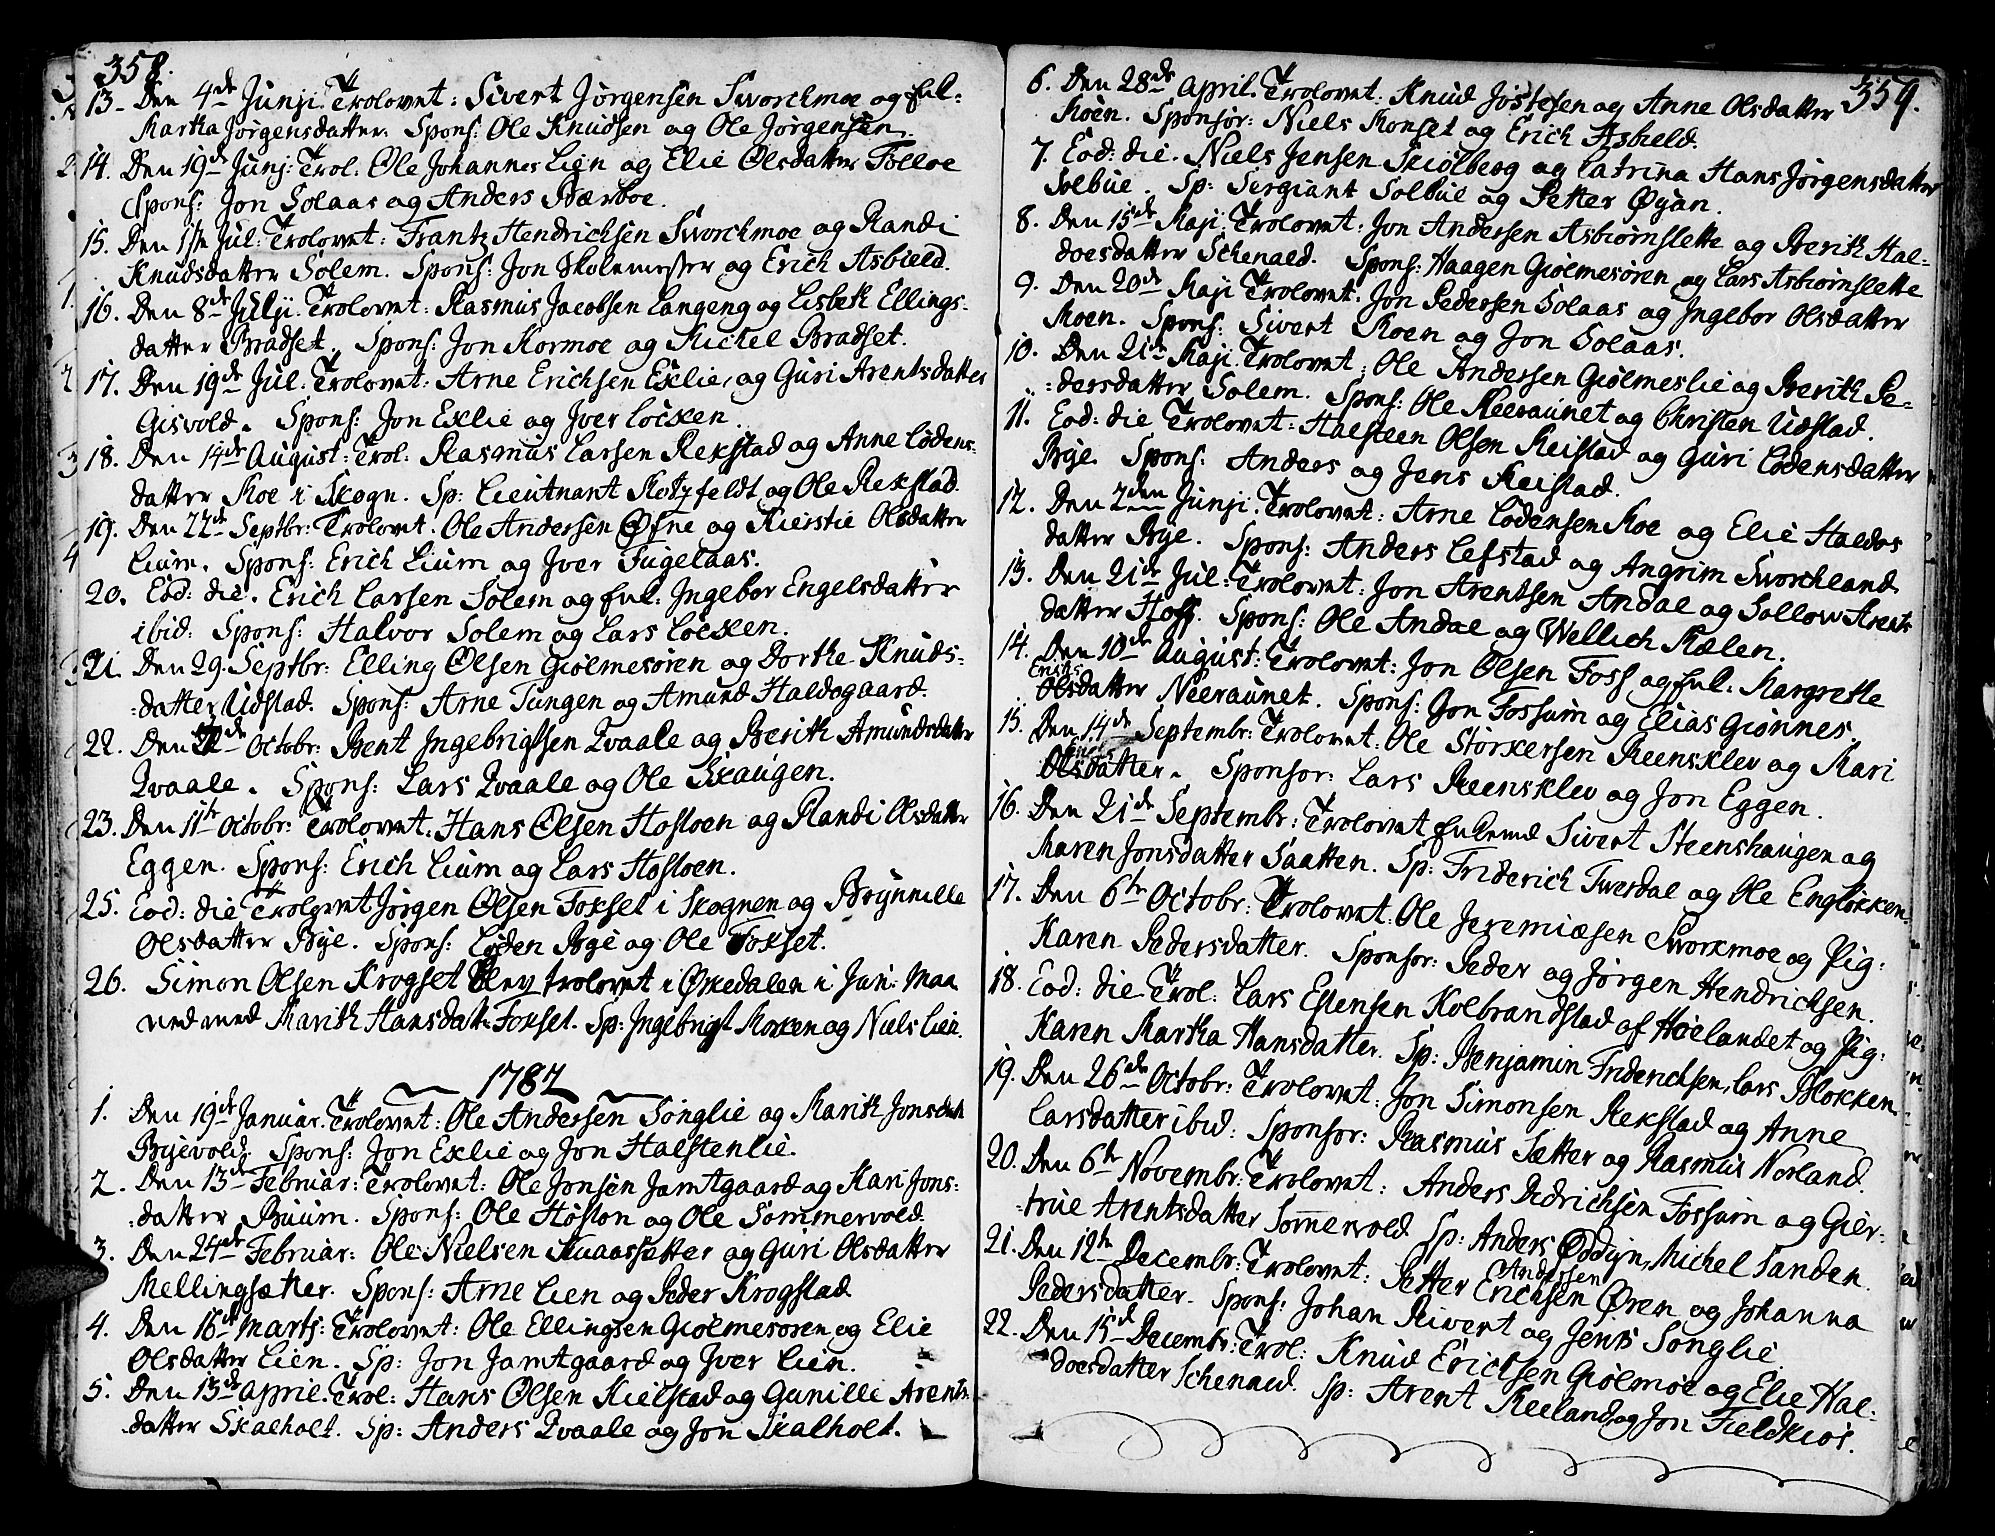 358.
13. Den 4de Junji. Trolovet: Sivert Jørgensen Sworchmoe og Enl:
Martha Jørgensdatter. Spons: Ole Knudsen og Ole Jørgensen.
14. Den 19de Junj: Trol: Ole Johannes Lien og Elie Olsdatter Folloe
Spons: Jon Solaas og Anders Bærboe.
15. Den 1ste Jul: Trolovet: Frantz Hendrichsen Sworchmoe og Randi
Knudsdatter Solem. Spons: Jon Skolemester og Erich Asbield.
16. Den 8de Julji. Trolovet: Rasmus Jacobsen Langeng og Lisbeth Ellings-
datter Bradset. Spons: Jon Mormoe og Michel Bradset.
17. Den 19de Jul: Trolovet: Arne Erichsen Exlie, og Guri Arentsdatter
Gisvold. Spons: Jon Exlie og Iver Löcken.
18. Den 14de August: Trol: Rasmus Larsen Rekstad og Anne Lodens-
datter Moe i Skogn. Sp: Lieutnant Motzfeldt og Ole Rekstad.
19. Den 22de Septbr: Trolovet: Ole Andersen Øfne og Kierstie Olsdatter
Lium. Spons: Erich Lium og Iver Fugelaas.
20. Eod: die. Erich Larsen Solem og Enl: Ingebor Engelsdatter
ibid: Spons: Halvor Solem og Lars Löcken.
21. Den 29. Septbr: Elling Olsen Giølmesøren og Dorthe Knuds-
:datter Udstad. Spons: Arne Tungen og Amund Haldogaard.
22. Den de Octobr: Bent Ingebrigtsen Qvaale og Berith Amundsdatter
Qvaale. Spons: Lars Qvaale og Ole Skaugen.
23. Den 11te Octobr: Trolovet. Hans Olsen Hostoen og Randi Olsdatter
Eggen. Spons: Erich Lium og Lars Hostoen.
25. Eod: die Trolovet Jörgen Olsen Foxset i Skognen og Brynnille
Olsdatter Bye. Spons: Loden Bye og Ole Foxset.
26. Simon Olsen Krogset blev trolovet i Ørkedalen i Juni Maa
ned med Marith Hansdatt: Foxset. Sp: Ingebrigt Mokken og Niels Lien.
1787
1. Den 19de Januar. Trolovet: Ole Andersen Songlie og Marith Jonsdatt
Byevold. Spons: Jon Exlie og Jon Halstenlie.
2. Den 13de Februar: Trolovet: Ole Jonsen Jamtgaard og Mari Jons-
:datter Buum. Spons: Ole Hoston og Ole Sommervold.
3. Den 24de Februar: Ole Nielsen Kuaassetter og Guri Olsdatter
Mellingsætter. Spons: Arne Lien og Peder Krogstad
4. Den 16de Marts: Trolovet: Ole Ellingsen Giølmesøren og Elie
Olsdatter Lien. Sp: Jon Jamtgaard og Iver Lien.
5. Den 13de April. Trol: Hans Olsen Kielstad og Gunille Arents-
datter Skalholt. Sp: Anders Qvaale og Jon Skalholt.
359.
6. Den 28de April. Trolovet: Knud Jostesen og Anne Olsdatter
Moen. Sponsor: Niels Monset og Erich Asbield.
7. Eod: die. Niels Jensen Skiölberg og Catrina Hans Jørgensdatter
Solbue. Sp: Sergiant Solbue og Petter Öyan.
8. Den 15de Maji. Trolovet: Jon Andersen Asbiörnslette og Berith Hal-
doesdatter Schenald. Spons: Haagen Giølmesøren og Lars Asbiörnslette
9. Den 20de Maji Trolovet. Jon Pedersen Solaas og Ingebor Olsdatter
Moen. Spons: Sivert Moen og Jon Solaas.
10. Den 21de Maji. Trolovet: Ole Andersen Giølmeslie og Berith Pe-
:dersdatter Solem. Spons: Ole Neeraunet og Christen Udstad.
11. Eod: die Trolovet: Halsteen Olsen Reistad og Guri Lodensdatter
Bye. Spons: Anders og Jens Reistad.
12. Den 2den Junji. Trolovet: Arne Lodensen Moe og Elie Haldos
datter Bye. Spons: Anders Lefstad og Angrim Sworchland
13. Den 21de Jul: Trolovet: Jon Arentsen Andal og Sollow Arents
datter Hoff. Spons: Ole Andal og Wellich Kælen.
14. Den 10de August: Trolovet: Jon Olsen Foss og Enl. Margrethe
Erichs
Olsdatter Neeraunet. Spons: Jon Fossum og Elias Giønnes.
15. Den 14de Septembr: Trolovet: Ole Storkersen Reensklev og Mari
Olsdatter. Sponsor: Lars Reensklev og Jon Eggen.
16. Den 21de Septembr: Trolovet Enkemd Sivert Steenshaugen og
Maren Jonsdatter Saatten. Sp: Friderich Tverdal og Ole Engløkken.
17. Den 6te Octobr: Trolovet: Ole Jeremiæsen Sworkmoe og Pig:
Karen Pedersdatter. Sponsor: Peder og Jørgen Hendrichsen.
18. Eod: die Trol: Lars Estensen Kolbrandstad af Høelandet og Pig:
Karen Martha Hansdatter. Sp: Benjamin Friderichsen, Lars Blokken
19. Den 26de Octobr: Trolovet: Jon Simonsen Rekstad og Anne
Larsdatter ibid: Sponsor: Rasmus Sætter og Rasmus Norland.
20. Den 6te Novembr: Trolovet: Anders Didrichsen Fossum og Gier-
:true Arentsdatter Sommervold Sp: Anders Oddyn, Michel Sanden.
21. Den 12te Decembr: Trolovet: Petter Erichsen Øren og Johanna
Andersen
Pedersdatter. Spons: Johan Sivert og Jens Songlie.
22. Den 15de Decembr: Trol: Knud Erichsen Giølmoe og Elie Hal-
doesdatter Schenald. Sp: Arent Meeland og Jon Fieldkios.